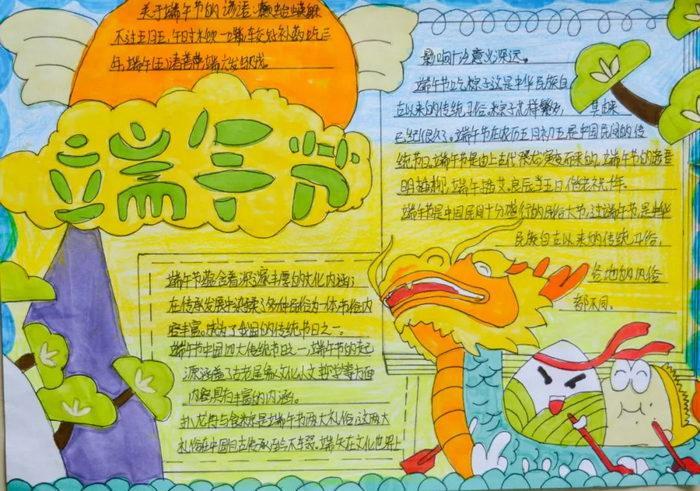 关于端午节的谚语:癞蛤蟆躲
不过五月五,
年,端午
端午节
影响十分意义深远。
端午节吃粽子这是中华民族自
古以来的传统习俗粽子花样繁多,其由来
已经很久了。端午节在农历五月初五是中国民间的传
统节日,端午节是由上古代
明插柳,端午插艾
端午节是中国民间十分盛行的民俗大节,过端午节是中华
民族自古以来的传统习俗,
各地的风俗
都不同。
端午节蕴含着深邃丰厚的文化内涵;
在传承发展中杂糅了多种民俗为一体,节俗内
容丰富。成为了我国的传统节日之一。
端午节中国四大传统节日之一,端午节的起
源涵盖了古老星象文化人文哲学等方面
内容,具有丰富的内涵。
扒龙舟与食粽是端午节两大礼俗,这两大
礼俗在中国自古传承至今不辍。端午在文化世界上